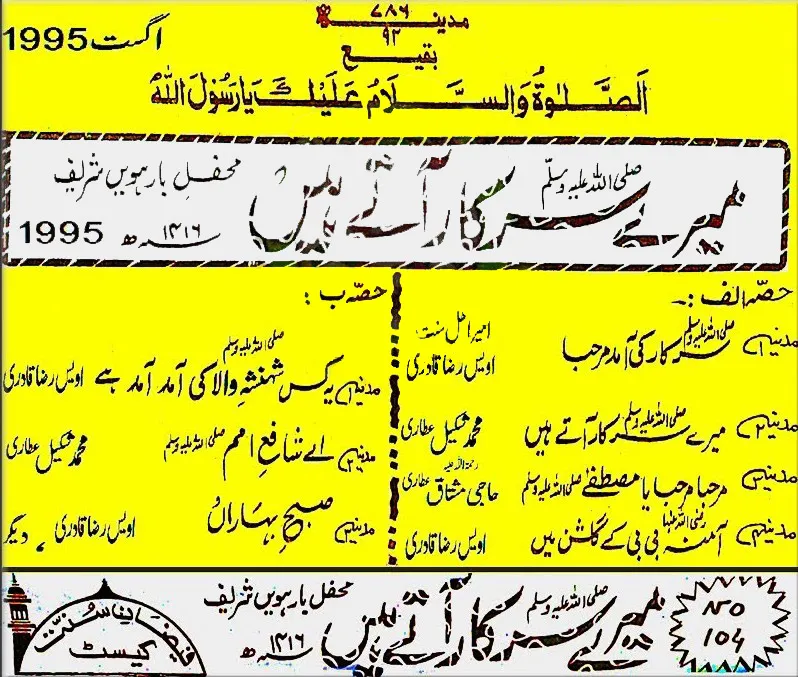 مدینہ ۷۸۶
۹۲
بقیع
اگست 1995
اَلصَّلٰوةُ وَالسَّلَامُ عَلَیْكَ یَارَسُوْلَ اللّٰهْ
میرے سرکار صلی اللہ علیہ وسلم آتے ہیں
محفلِ بارہویں شریف
۱۴۱۶ سنہ ھ 1995
حصّہ الف :۔
مدینہ ۱ سرکار صلی اللہ علیہ وسلم کی آمد مرحبا امیر اہل سنت اویس رضا قادری
مدینہ ۲ میرے سرکار صلی اللہ علیہ وسلم آتے ہیں محمد شکیل عطاری
مدینہ ۳ مرحبا مرحبا یا مصطفےٰ صلی اللہ علیہ وسلم حاجی مشتاق عطاری رحمۃ اللہ علیہ
مدینہ ۴ آمنہ رضی اللہ عنہا بی بی کے گلشن میں اویس رضا قادری
حصّہ ب :
مدینہ ۱ یہ کس شہنشہِ والا صلی اللہ علیہ وسلم کی آمد آمد ہے اویس رضا قادری
مدینہ ۲ اے شافعِ امم صلی اللہ علیہ وسلم محمد شکیل عطاری
مدینہ ۳ صبحِ بہاراں اویس رضا قادری ، دیگر
NO 104
میرے سرکار صلی اللہ علیہ وسلم آتے ہیں
محفل بارہویں شریف
۱۴۱۶ سنہ ھ
فیضانِ سنّت
کیسٹ